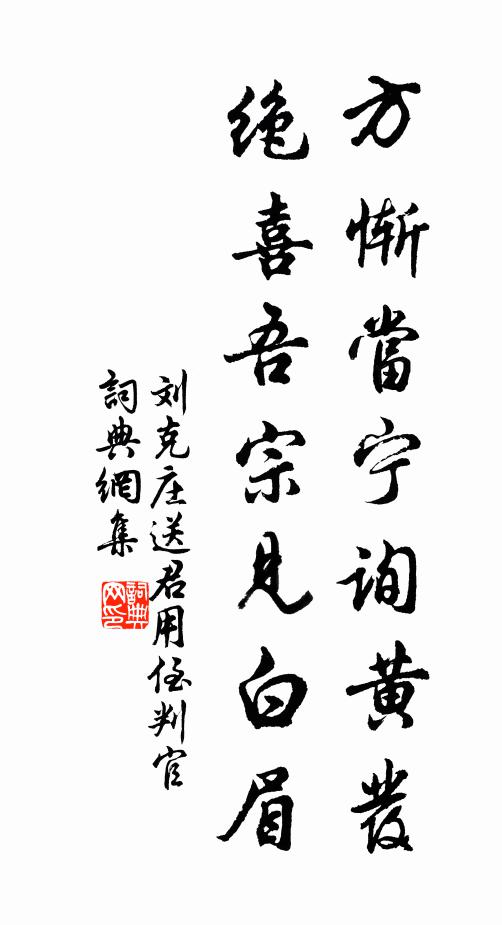 方惭當宁詢黄發
绝喜吾宗見白眉
刘克庄送君用侄判官
詞典網集
詞典网印